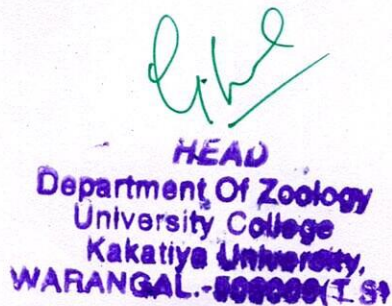 HEAD
Department Of Zoology
University College
Kakatiya University,
WARANGAL.- (T.S)